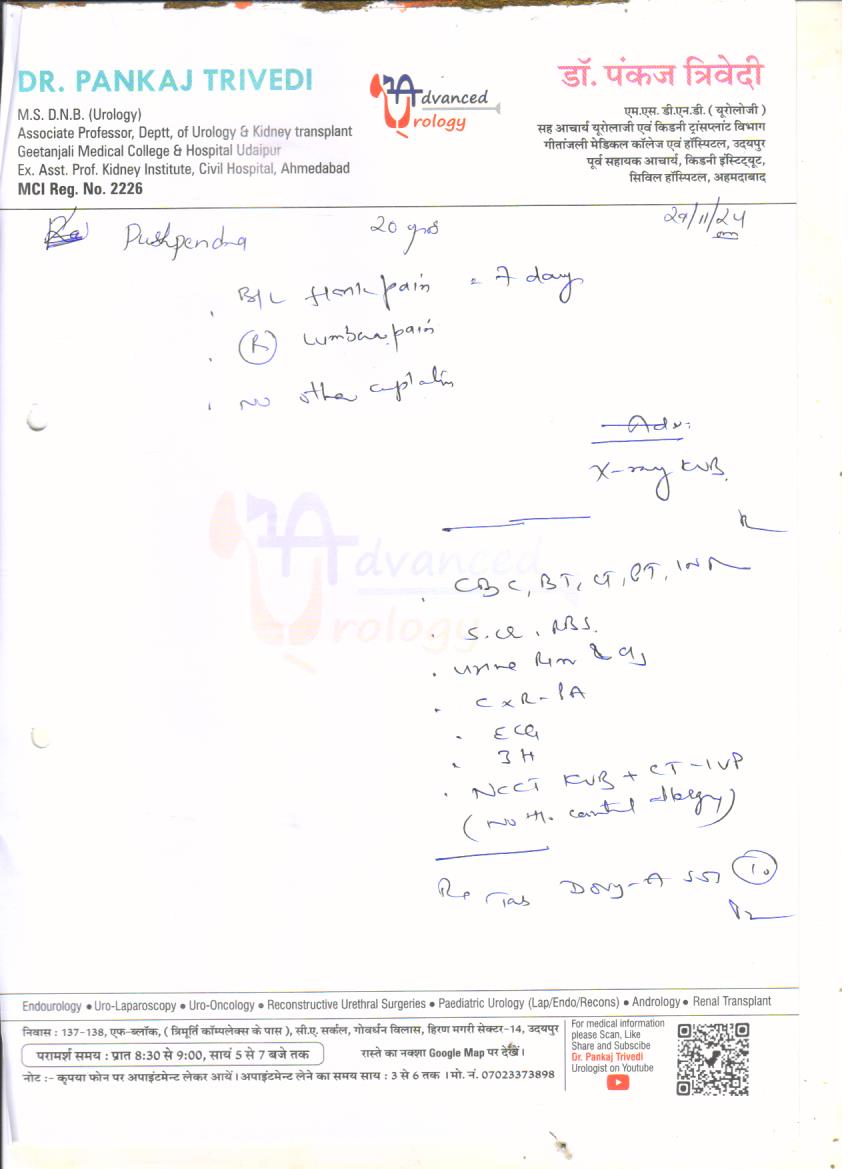 DR. PANKAJ TRIVEDI
M.S. D.N.B. (Urology)
Associate Professor, Deptt, of Urology & Kidney transplant
Geetanjali Medical College & Hospital Udaipur
Ex. Asst. Prof. Kidney Institute, Civil Hospital, Ahmedabad
MCI Reg. No. 2226
Advanced
Urology
डॉ. पंकज त्रिवेदी
एम.एस. डी.एन.डी. ( यूरोलोजी )
सह आचार्य यूरोलाजी एवं किडनी ट्रांसप्लांट विभाग
गीतांजली मेडिकल कॉलेज एवं हॉस्पिटल, उदयपुर
पूर्व सहायक आचार्य, किडनी इंस्टिट्यूट,
सिविल हॉस्पिटल, अहमदाबाद
Pushpendra 20 yrs 29/11/24
B/L flank pain 7 day
(R) Lumbar pain
No other
Adv:
X-ray KUB
Advanced
Urology
CBC, BT, CT, PT, INR
S. Cr, RBS.
Urine R/m &
CxR-PA
ECG
3H
NCCT KUB + CT-IVP
Tab
Endourology ● Uro-Laparoscopy ● Uro-Oncology ● Reconstructive Urethral Surgeries ● Paediatric Urology (Lap/Endo/Recons) ● Andrology ● Renal Transplant
निवास : 137-138, एफ-ब्लॉक, ( त्रिमूर्ति कॉम्पलेक्स के पास ), सी.ए. सर्कल, गोवर्धन विलास, हिरण मगरी सेक्टर-14, उदयपुर
परामर्श समय : प्रात 8:30 से 9:00, सायं 5 से 7 बजे तक रास्ते का नक्शा Google Map पर देखें।
नोट :- कृपया फोन पर अपाइंटमेन्ट लेकर आयें। अपाइंटमेन्ट लेने का समय साय : 3 से 6 तक । मो. नं. 07023373898
For medical information
please Scan, Like
Share and Subscibe
Dr. Pankaj Trivedi
Urologist on Youtube